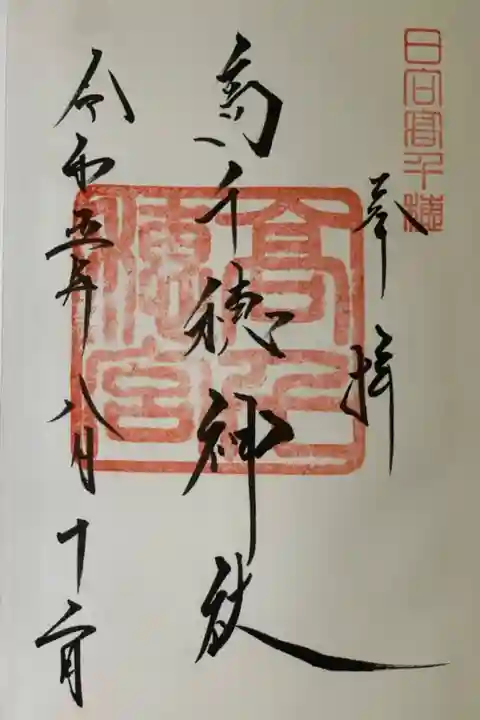 日向高千穂
奉拝
高千穂神社
高千穂宮
令和五年八月十二日